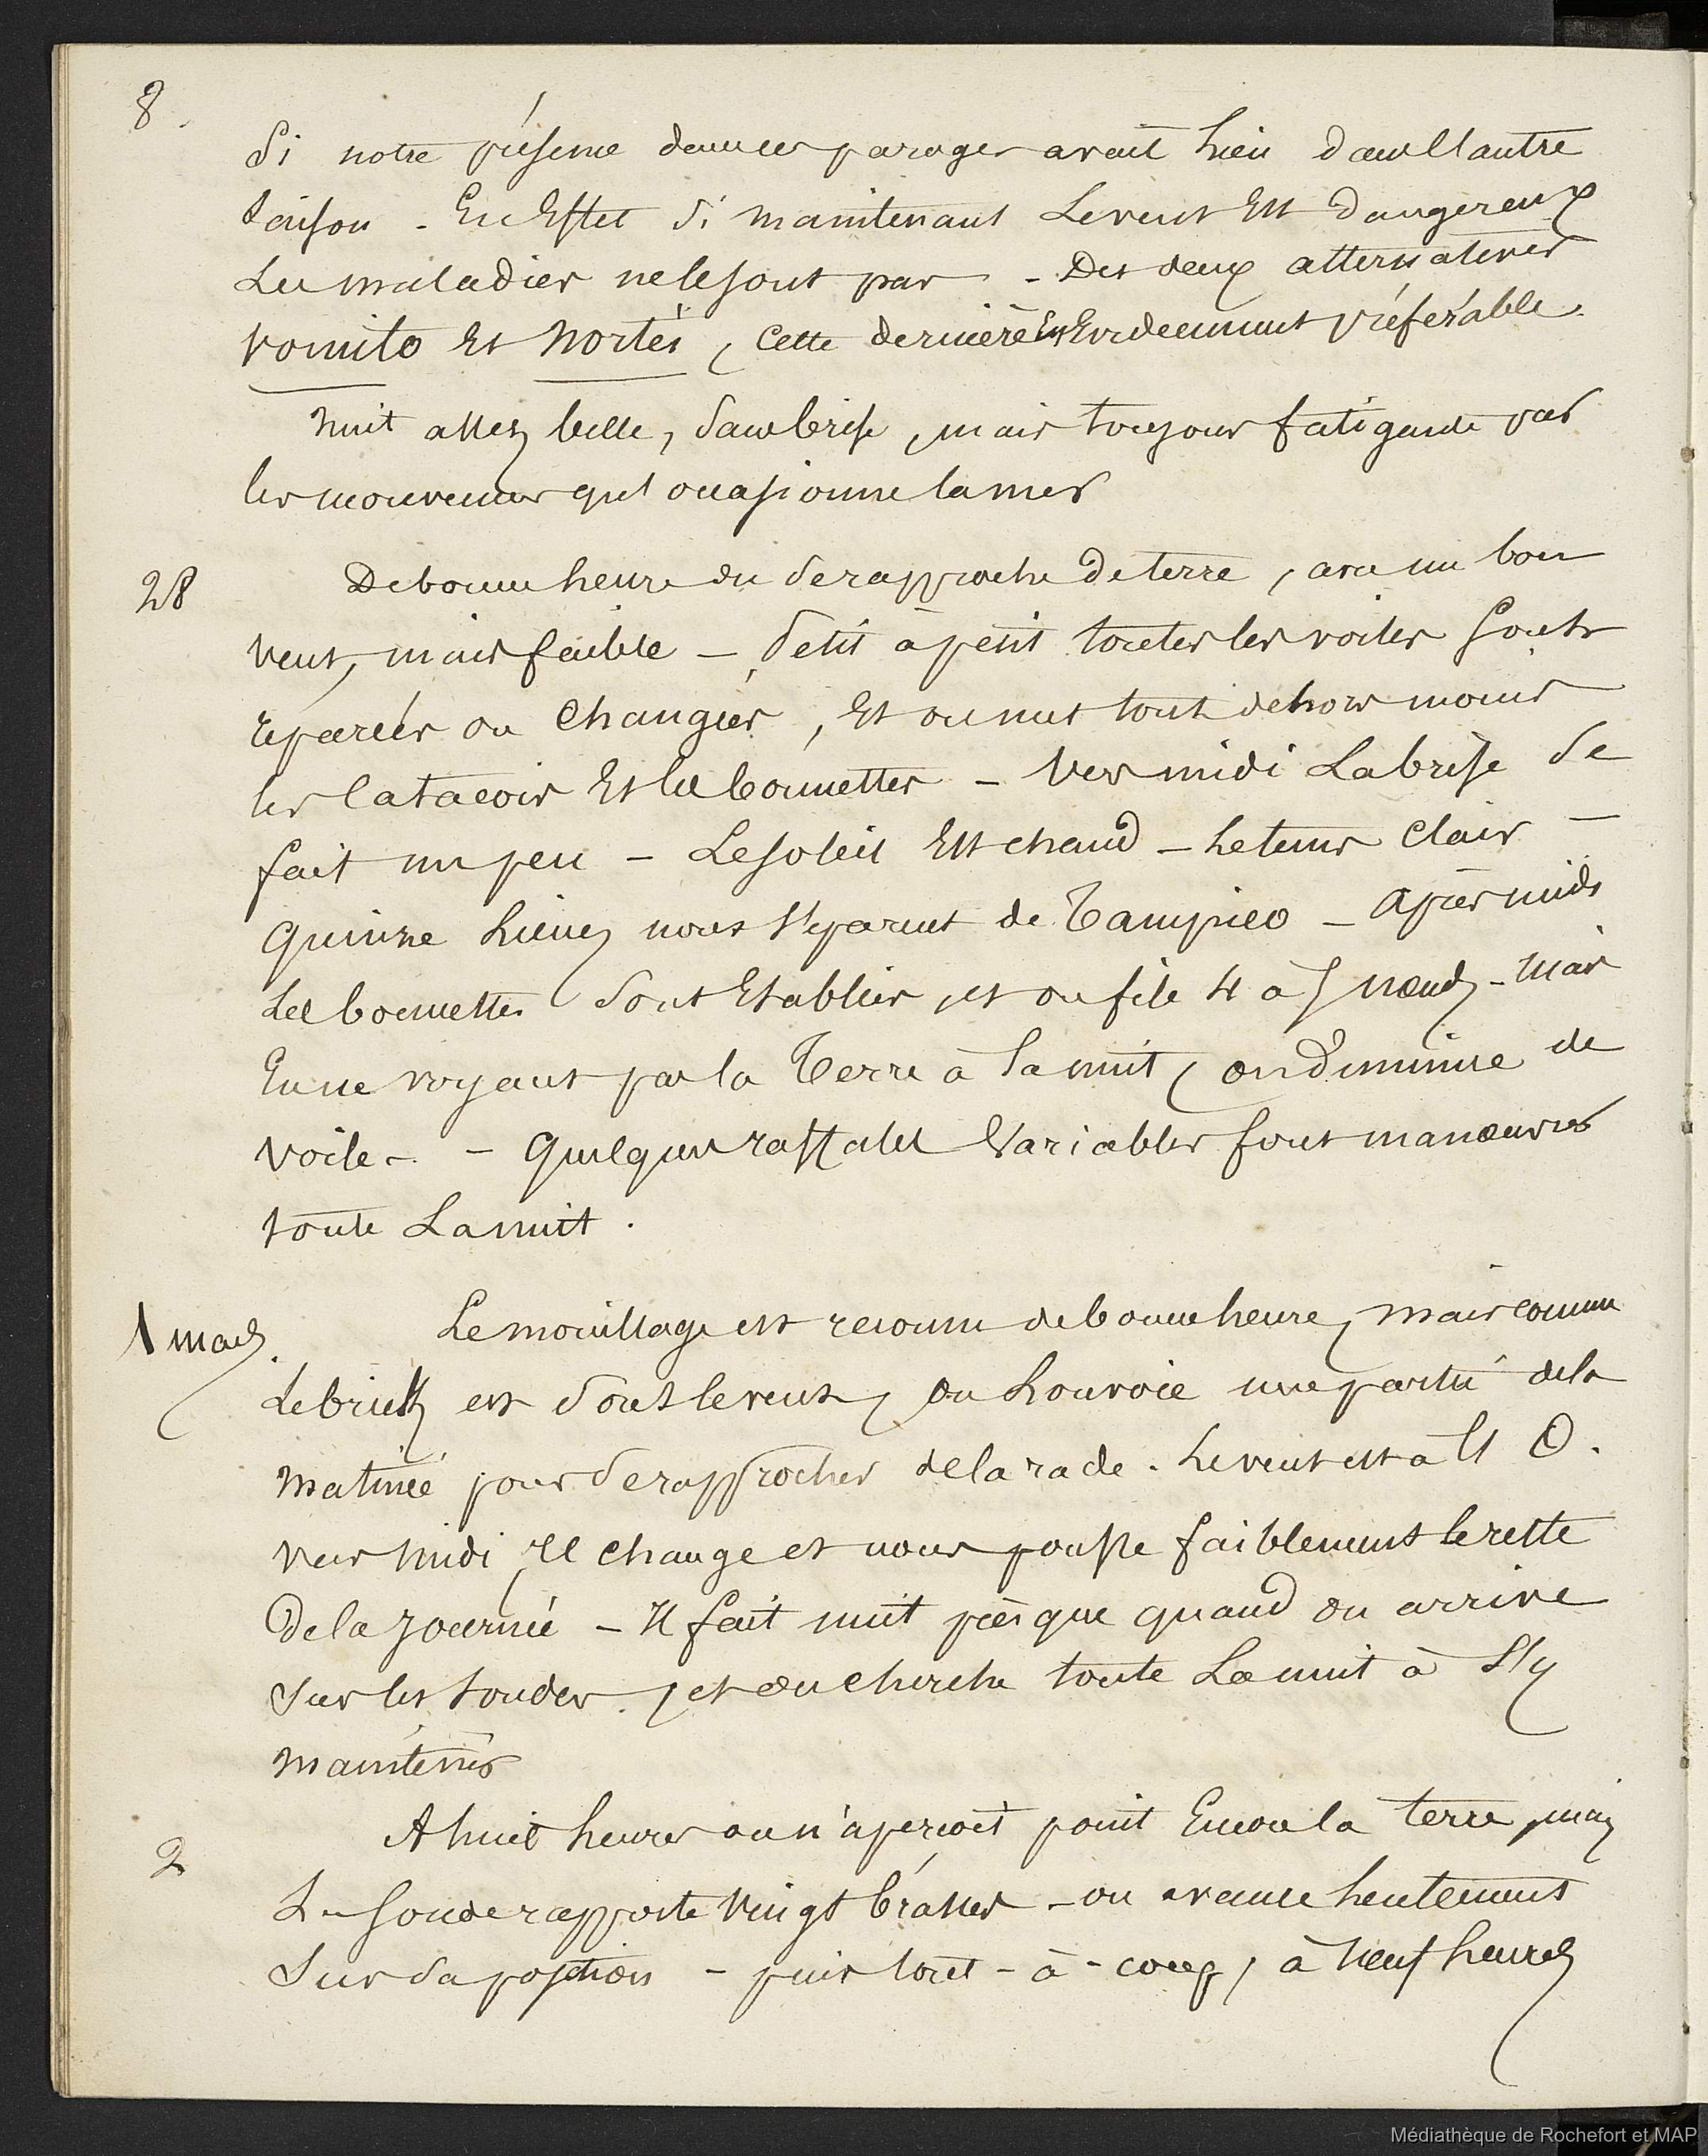 8.
Si notre présence dans ces parages avait lieu dans l'autre
saison. En Effet si maintenant Le vent Est dangereux
Les maladies ne le sont pas - Des deux alternatives
vomito Et Nortés, cette dernière Est Evidemment préférable.
Nuit assez belle, sans brise, mais toujours fatigante par
les mouvemens qu'occasionne la mer
28 De bonne heure on se rapproche de terre, avec un bon
vent, mais faible - Petit à petit toutes les voiles sont
réparées ou changées, Et on met tout dehors moins
les Catacois Et les bonnettes - Vers midi La brise se
fait un peu - Le soleil Est chaud - Le tems Clair -
Quinze Lieues nous séparent de Tampico - Après midi
Les bonnettes sont Etablies, et on file 4 à 5 nœuds - Mais
En ne voyant pas la Terre à La nuit, on diminue de
voile - - Quelques raffales Variables font manœuvrer
toute La nuit.
1 mars. Le mouillage est reconnu de bonne heure, mais comme
Le brick est sous le vent, on Louvoie une partie de la
matinée pour se rapprocher de la rade. Le vent est à l'O.
vers midi, Il change et nous pousse faiblement le reste
De la journée - Il fait nuit presque quand on arrive
sur les sondes, et on cherche toute La nuit à s'y
maintenir
2 A huit heures on n'aperçoit point Encore la terre, mais
La sonde rapporte vingt brasses - on avance lentement
Sur sa position - puis tout-à-coup, à neuf heures
Médiathèque de Rochefort et MAP